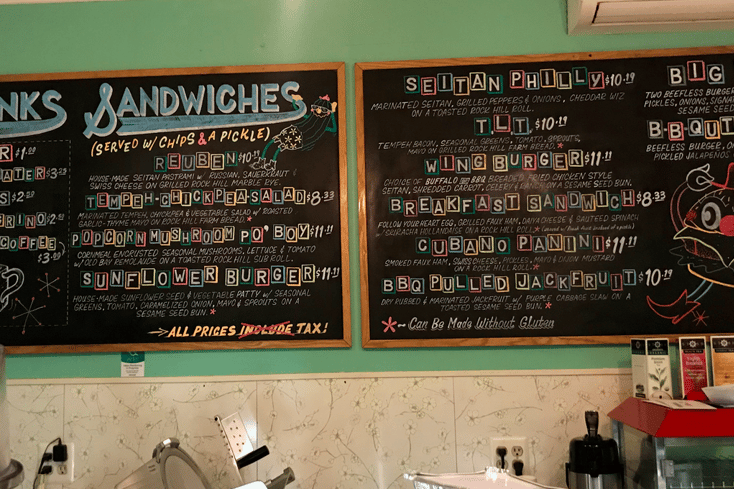 NKS
R $1.00
ATER $3.25
S $2.50
RINO $2.00
COFFEE
$3.00
SANDWICHES
(SERVED W/ CHIPS & A PICKLE)
REUBEN $10.19
HOUSE-MADE SEITAN PASTRAMI W/ RUSSIAN, SAUERKRAUT &
SWISS CHEESE ON GRILLED ROCK HILL MARBLE RYE.
TEMPEH-CHICKPEA-SALAD $8.33
MARINATED TEMPEH, CHICKPEA & VEGETABLE SALAD W/ ROASTED
GARLIC-THYME MAYO ON ROCK HILL FARM BREAD.*
POPCORN MUSHROOM PO' BOY $11.11
CORNMEAL ENCRUSTED SEASONAL MUSHROOMS, LETTUCE & TOMATO
W/ OLD BAY REMOLAUDE ON A TOASTED ROCK HILL SUB ROLL.
SUNFLOWER BURGER $11.11
HOUSE-MADE SUNFLOWER SEED & VEGETABLE PATTY W/ SEASONAL
GREENS, TOMATO, CARAMELIZED ONION, MAYO & SPROUTS ON A
SESAME SEED BUN.*
ALL PRICES INCLUDE TAX!
SEITAN PHILLY $10.19
MARINATED SEITAN, GRILLED PEPPERS & ONIONS, CHEDDAR WIZ
ON A TOASTED ROCK HILL ROLL.
T.L.T. $10.19
TEMPEH BACON, SEASONAL GREENS, TOMATO, SPROUTS,
MAYO ON GRILLED ROCK HILL FARM BREAD.*
WING BURGER $11.11
CHOICE OF BUFFALO OR BBQ BREADED FRIED CHICKEN STYLE
SEITAN, SHREDDED CARROT, CELERY & RANCH ON A SESAME SEED BUN.
BREAKFAST SANDWICH $8.33
FOLLOW YOUR HEART EGG, GRILLED FAUX HAM, DAIYA CHEESE & SAUTEED SPINACH
HOLLANDAISE ON A ROCK HILL ROLL.*
CUBANO PANINI $11.11
SMOKED FAUX HAM, SWISS CHEESE, PICKLES, MAYO & ONION MUSTARD
ON A ROCK HILL ROLL.*
BBQ PULLED JACKFRUIT $10.19
DRY RUBBED & MARINATED JACKFRUIT W/ PURPLE CABBAGE SLAW ON A
TOASTED SESAME SEED BUN.*
*~ Can Be Made Without Gluten
BIG
TWO BEEFLESS BURGER
PICKLES, ONIONS, SIGNA
SESAME SEED
B-B-QUIT
BEEFLESS BURGER, ON
PICKLED JALAPENOS